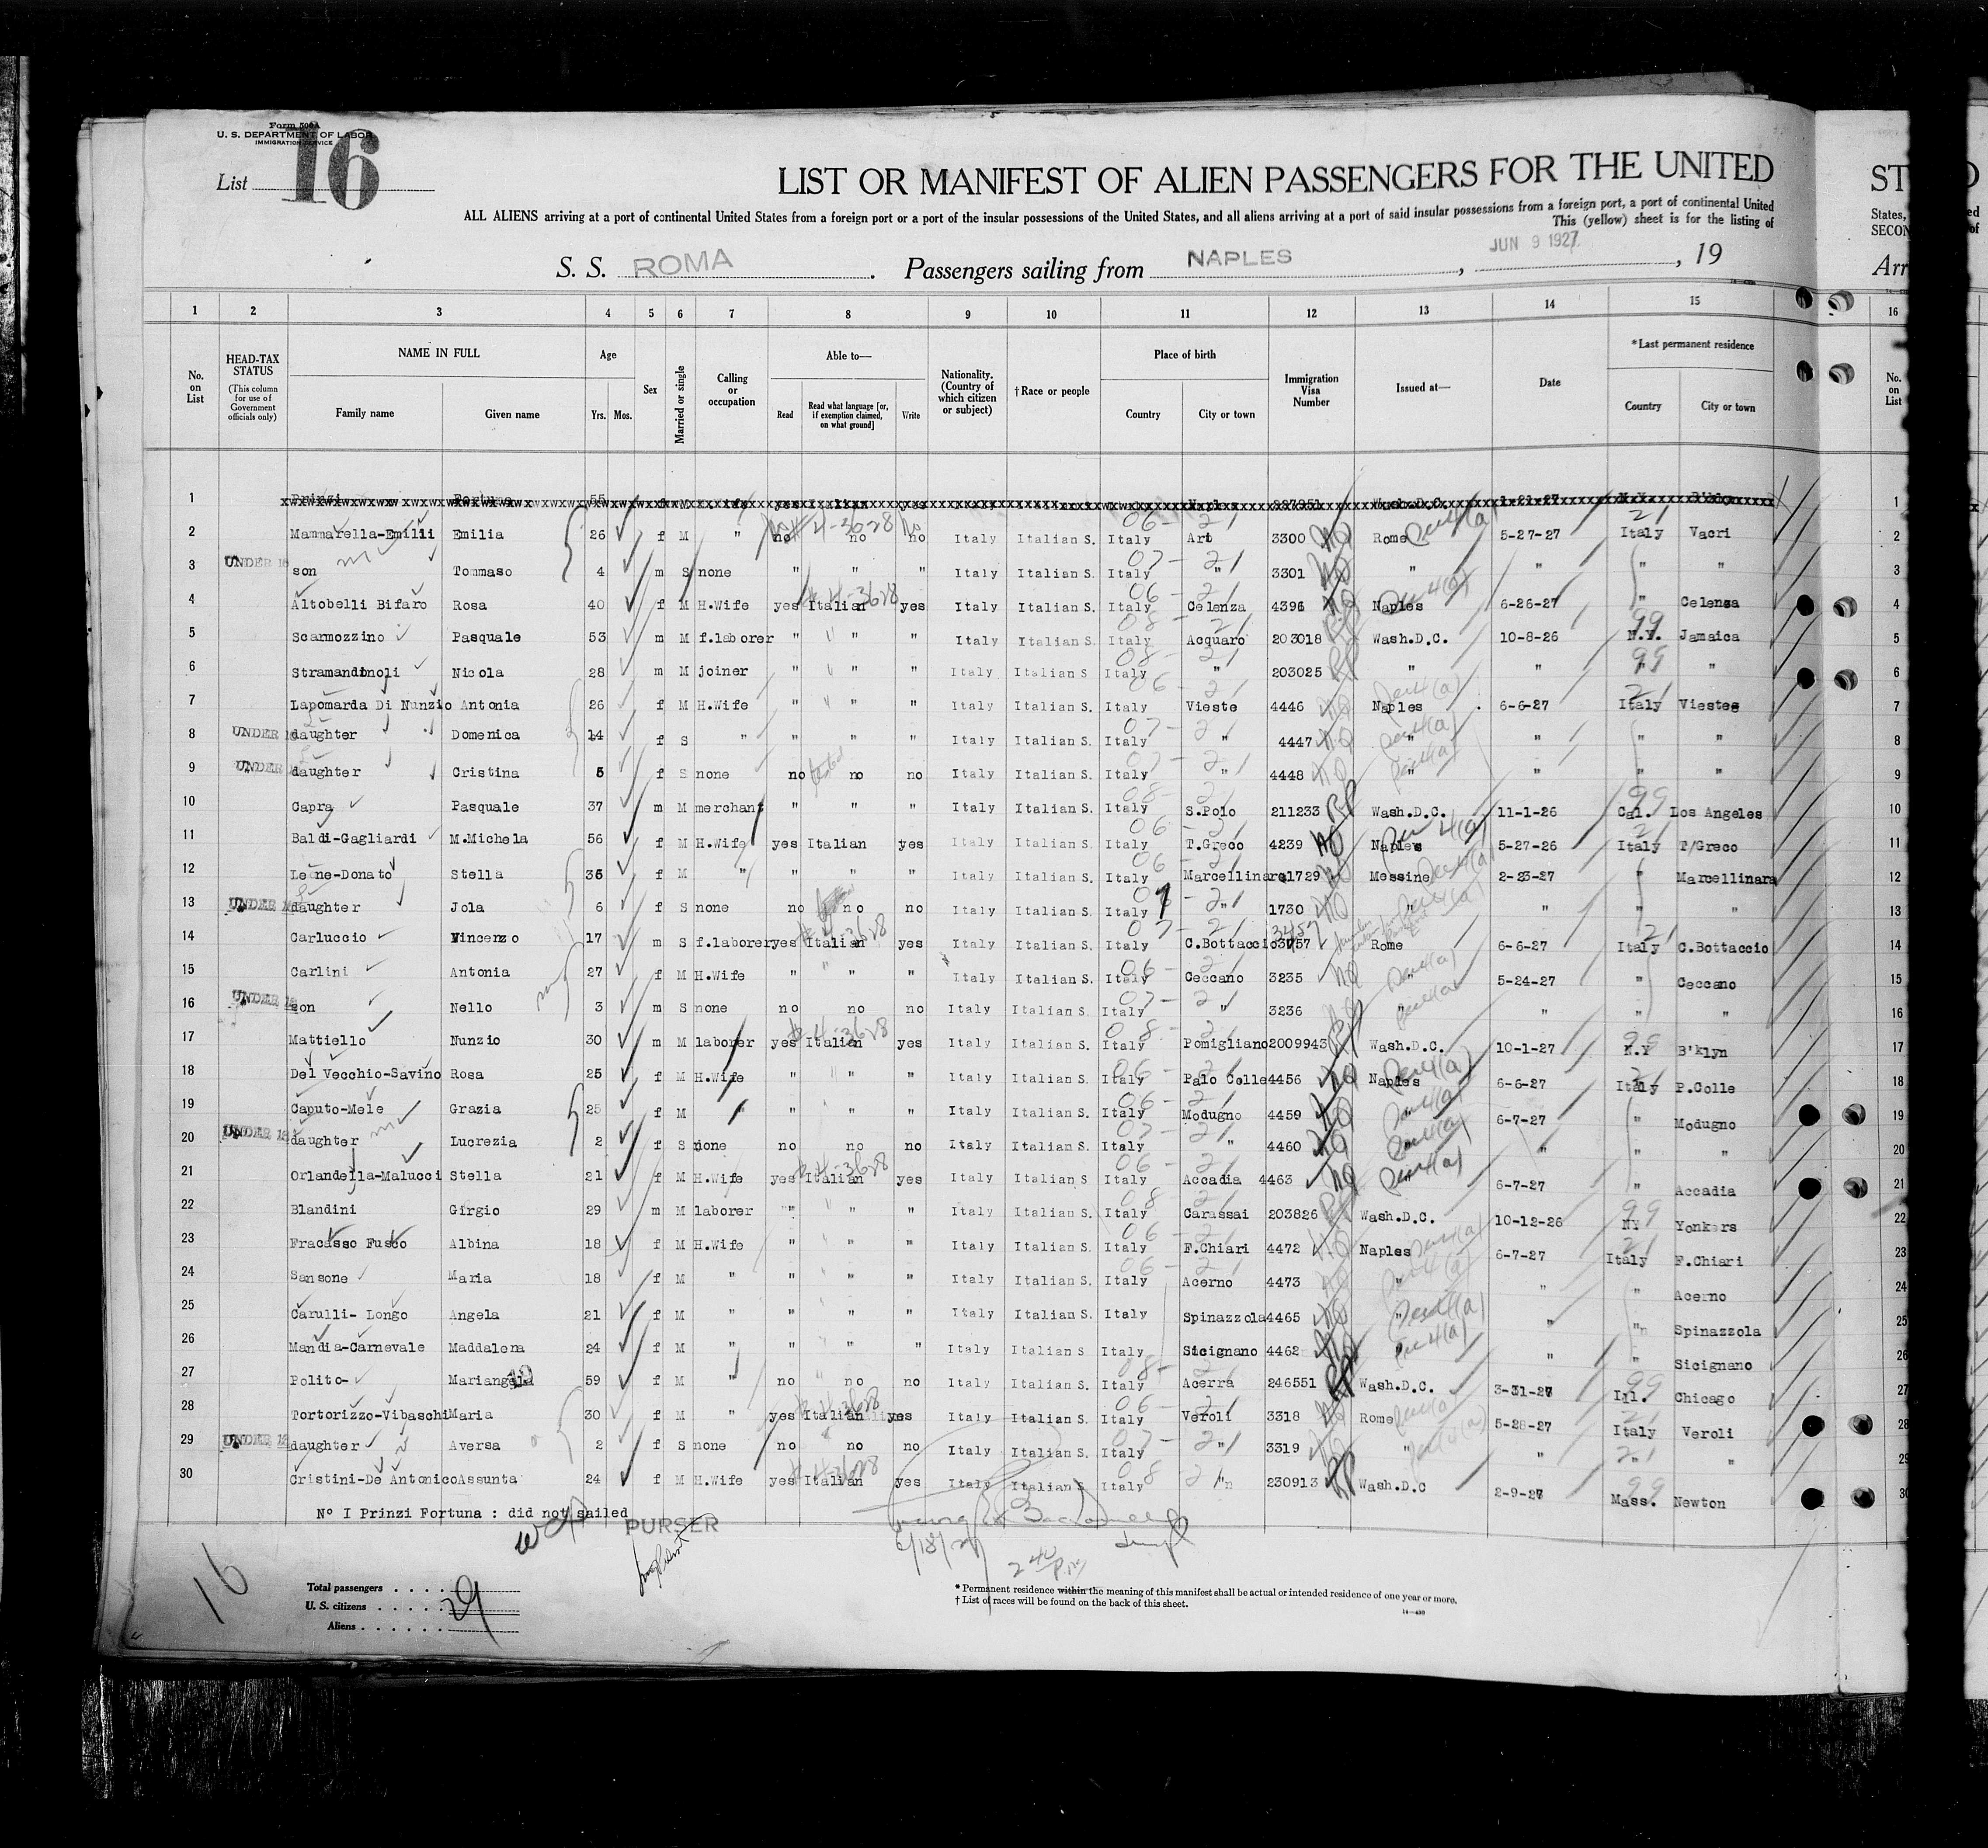 Form 500A
U. S. DEPARTMENT OF LABOR
IMMIGRATION SERVICE
List 16
LIST OR MANIFEST OF ALIEN PASSENGERS FOR THE UNITED
ST
ALL ALIENS arriving at a port of continental United States from a foreign port or a port of the insular possessions of the United States, and all aliens arriving at a port of said insular possessions from a foreign port, a port of continental United
States,
This (yellow) sheet is for the listing of
SECON
S. S. ROMA . Passengers sailing from NAPLES , JUN 9 1927 , 19
Arr
1 2 3 4 5 6 7 8 9 10 11 12 13 14 15 16
No. on List
HEAD-TAX STATUS
(This column for use of Government officials only)
NAME IN FULL
Family name Given name
Age
Yrs. Mos.
Sex
Married or single
Calling or occupation
Able to—
Read
Read what language [or, if exemption claimed, on what ground]
Write
Nationality. (Country of which citizen or subject)
†Race or people
Place of birth
Country City or town
Immigration Visa Number
Issued at—
Date
*Last permanent residence
Country City or town
No. on List
1 Prinzi Fortuna 55 f M Wash.D.C. 1
2 Mammarella-Emilii Emilia 26 f M " no no no Italy Italian S. Italy 3300 Rome 5-27-27 Italy Vacri 2
3 UNDER 16 son Tommaso 4 m S none " " " Italy Italian S. Italy " 3301 " " " " 3
4 Altobelli Bifaro Rosa 40 f M H.Wife yes Italian yes Italy Italian S. Italy Celenza 4396 Naples 6-26-27 " Celenza 4
5 Scarmozzino Pasquale 53 m M f.laborer " " " Italy Italian S. Italy Acquaro 203018 Wash.D.C. 10-8-26 N.Y. Jamaica 5
6 Stramandinoli Nicola 28 m M joiner " " " Italy Italian S Italy " 203025 " " " " 6
7 Lapomarda Di Nunzio Antonia 26 f M H.Wife " " " Italy Italian S. Italy Vieste 4446 Naples 6-6-27 Italy Viestes 7
8 UNDER 16 daughter Domenica 14 f S " " " " Italy Italian S. Italy " 4447 " " " " 8
9 UNDER daughter Cristina 5 f S none no no no Italy Italian S. Italy " 4448 " " " " 9
10 Capra Pasquale 37 m M merchant " " " Italy Italian S. Italy S.Polo 211233 Wash.D.C. 11-1-26 Cal. Los Angeles 10
11 Baldi-Gagliardi M.Michela 56 f M H.Wife yes Italian yes Italy Italian S. Italy T.Greco 4239 Naples 5-27-26 Italy T/Greco 11
12 Leone-Donato Stella 36 f M " " " " Italy Italian S. Italy Marcellinara 1729 Messine 2-23-27 " Marcellinara 12
13 UNDER 16 daughter Jola 6 f S none no no no Italy Italian S. Italy " 1730 " " " " 13
14 Carluccio Vincenzo 17 m S f.laborer yes Italian yes Italy Italian S. Italy C.Bottaccio 3457 Rome 6-6-27 Italy C.Bottaccio 14
15 Carlini Antonia 27 f M H.Wife " " " Italy Italian S. Italy Ceccano 3235 " 5-24-27 " Ceccano 15
16 UNDER 16 son Nello 3 m S none no no no Italy Italian S. Italy " 3236 " " " " 16
17 Mattiello Nunzio 30 m M laborer yes Italian yes Italy Italian S. Italy Pomigliano 2009943 Wash.D.C. 10-1-27 N.Y B'klyn 17
18 Del Vecchio-Savino Rosa 25 f M H.Wife " " " Italy Italian S. Italy Palo Colle 4456 Naples 6-6-27 Italy P.Colle 18
19 Caputo-Mele Grazia 25 f M " " " " Italy Italian S. Italy Modugno 4459 " 6-7-27 " Modugno 19
20 UNDER 16 daughter Lucrezia 2 f S none no no no Italy Italian S. Italy " 4460 " " " " 20
21 Orlandella-Malucci Stella 21 f M H.Wife yes Italian yes Italy Italian S Italy Accadia 4463 " 6-7-27 " Accadia 21
22 Blandini Girgio 29 m M laborer " " " Italy Italian S. Italy Carassai 203826 Wash.D.C. 10-12-26 NY Yonkers 22
23 Fracasso Fusco Albina 18 f M H.Wife " " " Italy Italian S. Italy F.Chiari 4472 Naples 6-7-27 Italy F.Chiari 23
24 Sansone Maria 18 f M " " " " Italy Italian S. Italy Acerno 4473 " " " Acerno 24
25 Carulli- Longo Angela 21 f M " " " " Italy Italian S. Italy Spinazzola 4465 " " " Spinazzola 25
26 Mandia-Carnevale Maddalena 24 f M " " " " Italy Italian S Italy Sicignano 4462 " " " Sicignano 26
27 Polito- Mariangela 59 f M " no no no Italy Italian S. Italy Acerra 246551 Wash.D.C. 3-31-27 Ill. Chicago 27
28 Tortorizzo-Vibaschi Maria 30 f M " yes Italian yes Italy Italian S. Italy Veroli 3318 Rome 5-28-27 Italy Veroli 28
29 UNDER 16 daughter Aversa 2 f S none no no no Italy Italian S. Italy " 3319 " " " " 29
30 Cristini-De Antonico Assunta 24 f M H.Wife yes Italian yes Italy Italian S Italy " 230913 Wash.D.C 2-9-27 Mass. Newton 30
Nº I Prinzi Fortuna : did not sailed
PURSER
6/18/27
2 40 P.M
16
Total passengers
U. S. citizens 29
Aliens
* Permanent residence within the meaning of this manifest shall be actual or intended residence of one year or more.
† List of races will be found on the back of this sheet.
14—430